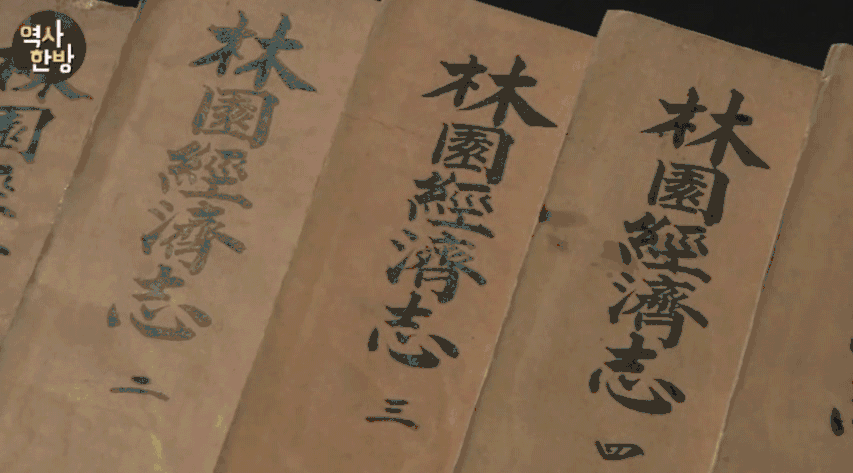 역사
한방
林園經濟志 二
林園經濟志 三
林園經濟志 四